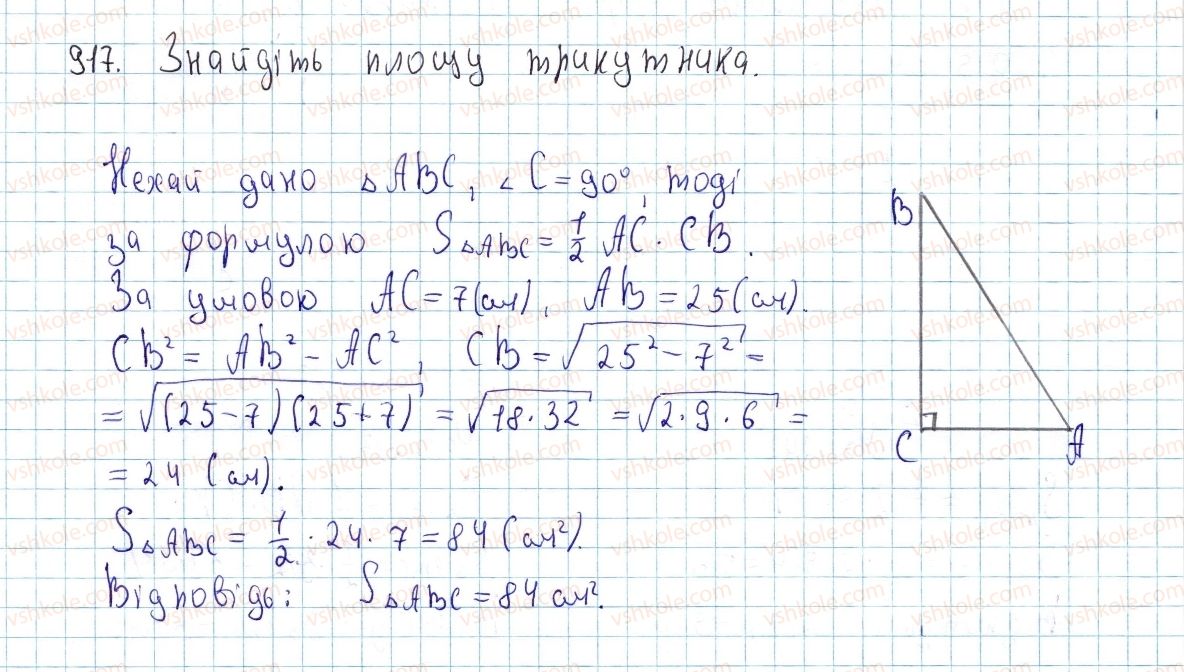 917. Знайдіть площу трикутника.
Нехай дано △ABC, ∠C = 90°, тоді
за формулою S△ABC = 1/2 AC · CB.
За умовою AC = 7 (см), AB = 25 (см).
CB² = AB² − AC², CB = √(25² − 7²) =
= √((25−7)(25+7)) = √(18·32) = √(2·9·6) =
= 24 (см).
S△ABC = 1/2 · 24 · 7 = 84 (см²).
Відповідь: S△ABC = 84 см².
B
C
A